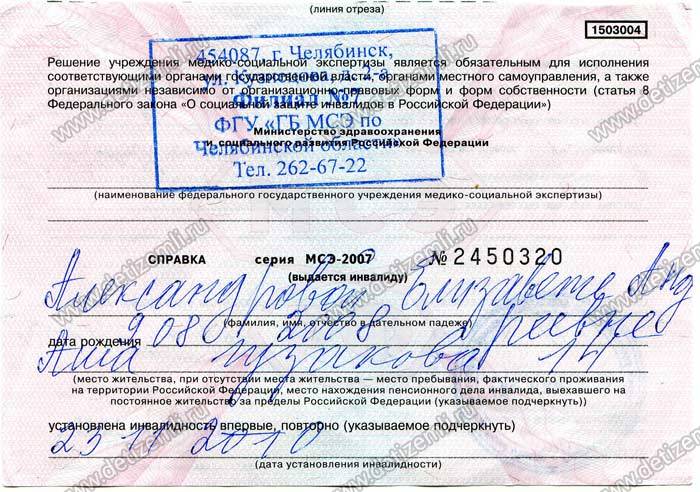 (линия отреза)
1503004
Решение учреждения медико-социальной экспертизы является обязательным для исполнения
соответствующими органами государственной власти, органами местного самоуправления, а также
организациями независимо от организационно-правовых форм и форм собственности (статья 8
Федерального закона «О социальной защите инвалидов в Российской Федерации»)
454087, г. Челябинск,
ул. Кузнецова д. 2-а
Филиал №7
ФГУ «ГБ МСЭ по
Челябинской области»
Тел. 262-67-22
Министерство здравоохранения
и социального развития Российской Федерации
(наименование федерального государственного учреждения медико-социальной экспертизы)
СПРАВКА серия МСЭ-2007 № 2450320
(выдается инвалиду)
Александровой Елизавете Анд
(фамилия, имя, отчество в дательном падеже)
реевне
дата рождения 9 08 2008
Аша 14
(место жительства, при отсутствии места жительства — место пребывания, фактического проживания
на территории Российской Федерации, место нахождения пенсионного дела инвалида, выехавшего на
постоянное жительство за пределы Российской Федерации (указываемое подчеркнуть))
установлена инвалидность впервые, повторно (указываемое подчеркнуть)
23 11 2010
(дата установления инвалидности)
www.detizemli.ru